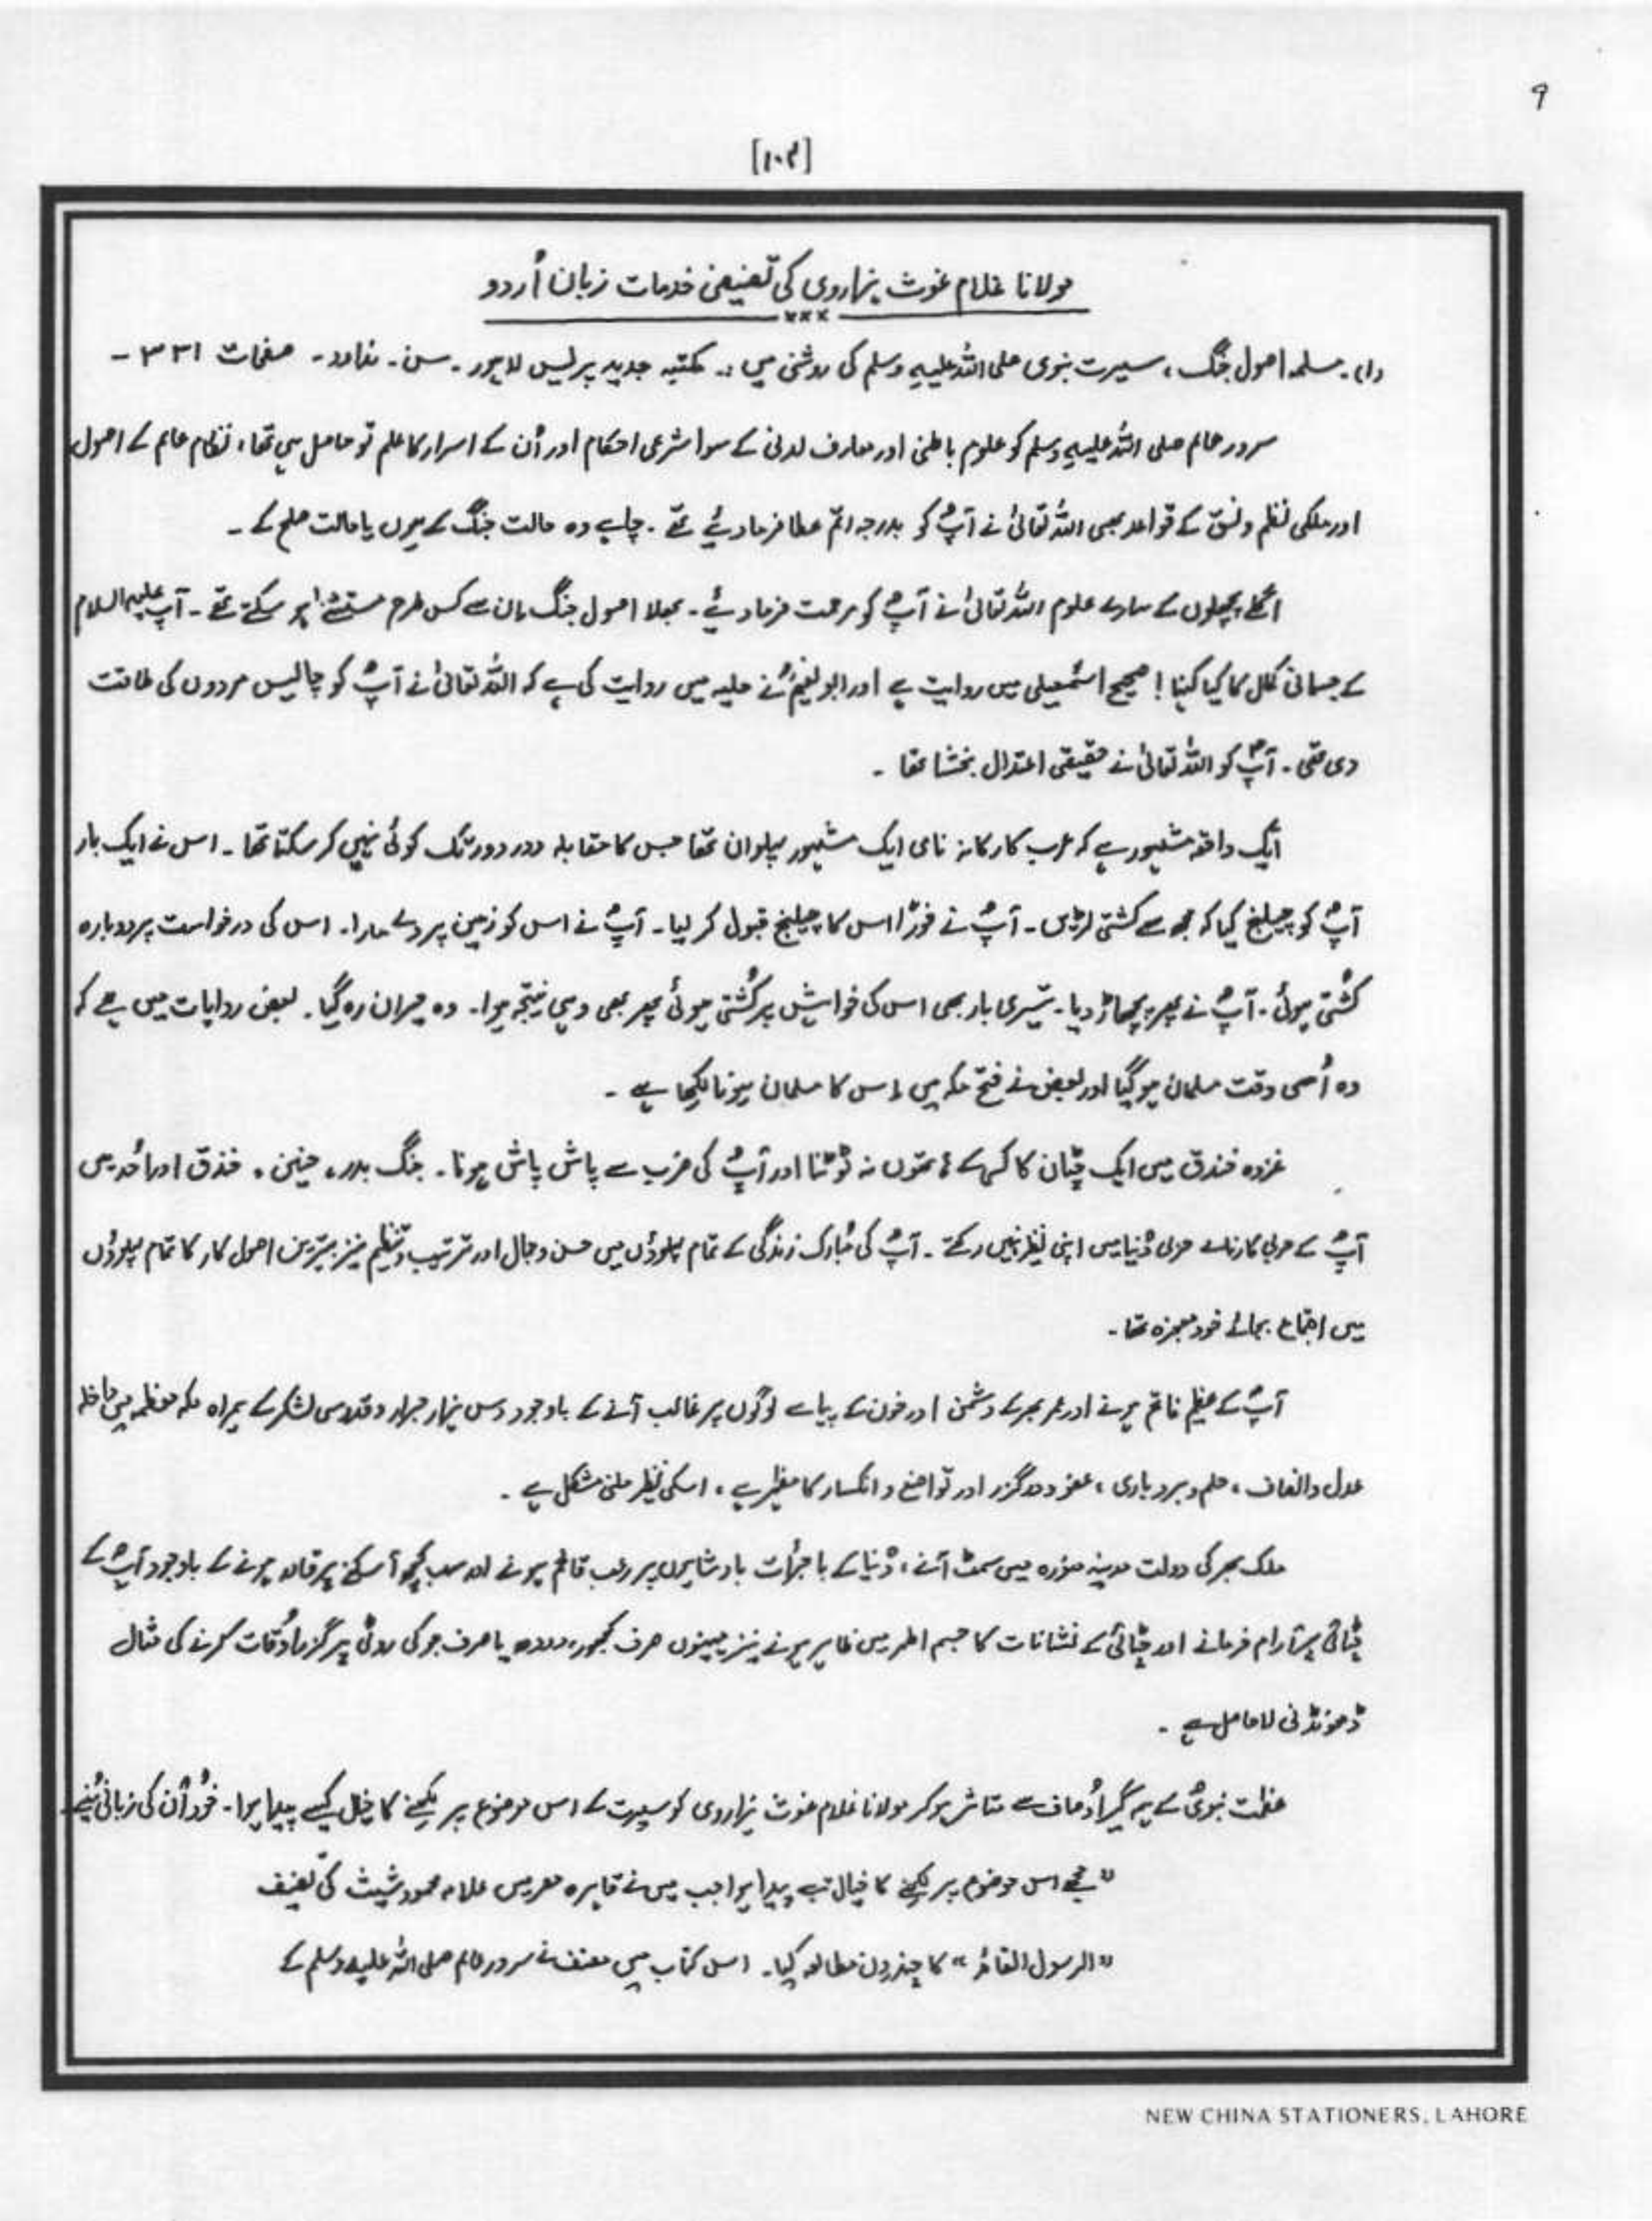 ۹
[۱۰۴]
مولانا غلام غوث ہزاروی کی تصنیفی خدمات زبان اُردو
×××
(۱)۔ مسلمہ اصول جنگ، سیرت نبوی صلی اللہ علیہ وسلم کی روشنی میں :۔ مکتبہ جدید پریس لاہور ۔ سن ۔ ندارد ۔ صفحات ۳۳۱ ۔
سرور عالم صلی اللہ علیہ وسلم کو علوم باطنی اور معارف لدنی کے سوا شرعی احکام اور اُن کے اسرار کا علم تو حاصل ہی تھا، نظام عالم کے اصول
اور ملکی نظم و نسق کے قواعد بھی اللہ تعالیٰ نے آپؐ کو بدرجہ اتم عطا فرما دیئے تھے ۔ چاہے وہ حالت جنگ کے ہوں یا حالت صلح کے ۔
اگلے پچھلوں کے سارے علوم اللہ تعالیٰ نے آپؐ کو مرحمت فرما دیئے ۔ بھلا اصول جنگ ان سے کس طرح مستثنےٰ ہو سکتے تھے ۔ آپ علیہ السلام
کے جسمانی کمال کا کیا کہنا ! صحیح اسمٰعیلی میں روایت ہے اور ابو نعیمؒ نے حلیہ میں روایت کی ہے کہ اللہ تعالیٰ نے آپؐ کو چالیس مردوں کی طاقت
دی تھی ۔ آپؐ کو اللہ تعالیٰ نے حقیقی اعتدال بخشا تھا ۔
ایک واقعہ مشہور ہے کہ عرب کا رکانہ نامی ایک مشہور پہلوان تھا جس کا مقابلہ دور دور تک کوئی نہیں کر سکتا تھا ۔ اس نے ایک بار
آپؐ کو چیلنج کیا کہ مجھ سے کشتی لڑیں ۔ آپؐ نے فوراً اس کا چیلنج قبول کر لیا ۔ آپؐ نے اس کو زمین پر دے مارا ۔ اس کی درخواست پر دوبارہ
کشتی ہوئی ۔ آپؐ نے پھر پچھاڑ دیا ۔ تیسری بار بھی اس کی خواہش پر کُشتی ہوئی پھر بھی وہی نتیجہ ہوا ۔ وہ حیران رہ گیا ۔ بعض روایات میں ہے کہ
وہ اُسی وقت مسلمان ہو گیا اور بعض نے فتح مکہ میں اس کا مسلمان ہونا لکھا ہے ۔
غزوہ خندق میں ایک چٹان کا کسی کے ہاتھوں نہ ٹوٹنا اور آپؐ کی ضرب سے پاش پاش ہونا ۔ جنگ بدر، حنین، خندق اور اُحد میں
آپؐ کے حربی کارنامے حربی دُنیا میں اپنی نظیر نہیں رکھتے ۔ آپؐ کی مُبارک زندگی کے تمام پہلوؤں میں حسن و جمال اور ترتیب و تنظیم نیز بہترین اصول کار کا تمام پہلوؤں
میں اجتماع بجائے خود معجزہ تھا ۔
آپؐ کے عظیم فاتح ہونے اور عمر بھر کے دشمن اور خون کے پیاسے لوگوں پر غالب آنے کے باوجود دس ہزار جرار و قدوسی لشکر کے ہمراہ مکہ معظمہ میں داخلہ
عدل و انصاف، حلم و بردباری، عفو و درگزر اور تواضع و انکسار کا مظہر ہے، اسکی نظیر ملنی مشکل ہے ۔
ملک بھر کی دولت مدینہ منورہ میں سمٹ آنے، دُنیا کے باجرأت بادشاہوں پر رعب قائم ہونے اور سب کچھ آسکنے پر قادر ہونے کے باوجود آپؐ کے
چٹائی پر آرام فرمانے اور چٹائی کے نشانات کا جسم اطہر میں ظاہر ہونے نیز مہینوں صرف کھجور، دودھ یا صرف جو کی روٹی پر گزر اوقات کرنے کی مثال
ڈھونڈنی لاحاصل ہے ۔
عظمت نبویؐ کے ہمہ گیر اوصاف سے متاثر ہو کر مولانا غلام غوث ہزاروی کو سیرت کے اس موضوع پر لکھنے کا خیال کیسے پیدا ہوا ۔ خود اُن کی زبانی سُنیے
" مجھے اس موضوع پر لکھنے کا خیال تب پیدا ہوا جب میں نے قاہرہ مصر میں علامہ محمود شیث کی تصنیف
" الرسول القائد " کا چند دن مطالعہ کیا ۔ اس کتاب میں مصنف نے سرور عالم صلی اللہ علیہ وسلم کے
NEW CHINA STATIONERS, LAHORE